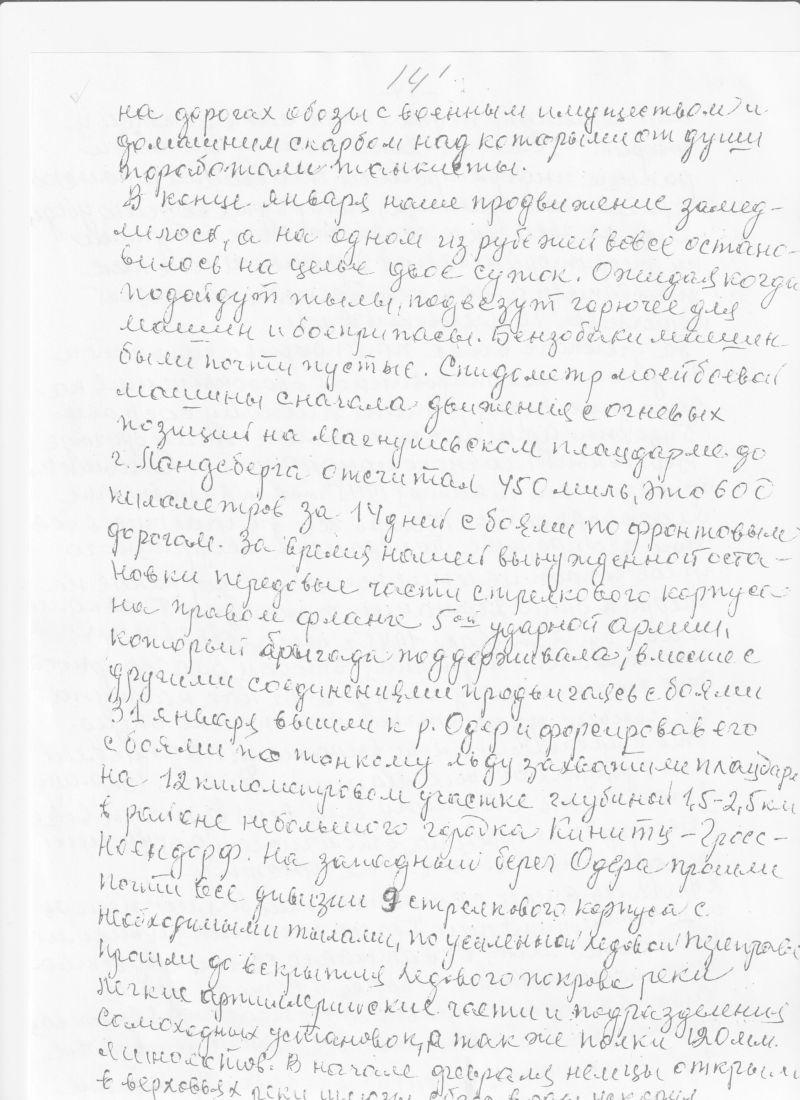 141
на дорогах обозы с военным имуществом и
домашним скарбом над которыми от души
поработали танкисты.
В конце января наше продвижение замед-
лилось, а на одном из рубежей вовсе остано-
вилось на целые двое суток. Ожидая когда
подойдут тылы, подвезут горючее для
машин и боеприпасы. Бензобаки машин
были почти пустые. Спидометр моей боевой
машины с начала движения с огневых
позиций на Магнушевском плацдарме до
г. Ландсберга отсчитал 450 миль, это 600
километров за 14 дней с боями по фронтовым
дорогам. За время нашей вынужденной оста-
новки передовые части стрелкового корпуса
на правом фланге 5ой ударной армии,
который бригада поддерживала, вместе с
другими соединениями продвигаясь с боями
31 января вышли к р. Одер и форсировав его
с боями по тонкому льду захватили плацдарм
на 12 километровом участке глубиной 1,5-2,5 км
в районе небольшого городка Киниту - Гросс-
Ноендорф. На западный берег Одера прошли
почти все дивизии 9 стрелкового корпуса с
необходимыми тылами, по усиленной ледовой переправе
прошли до вскрытия ледового покрова реки
легкие артиллерийские части и подразделения
самоходных установок, а так же полки 120 мм.
минометов. В начале февраля немцы открыли
в верховьях реки шлюзы